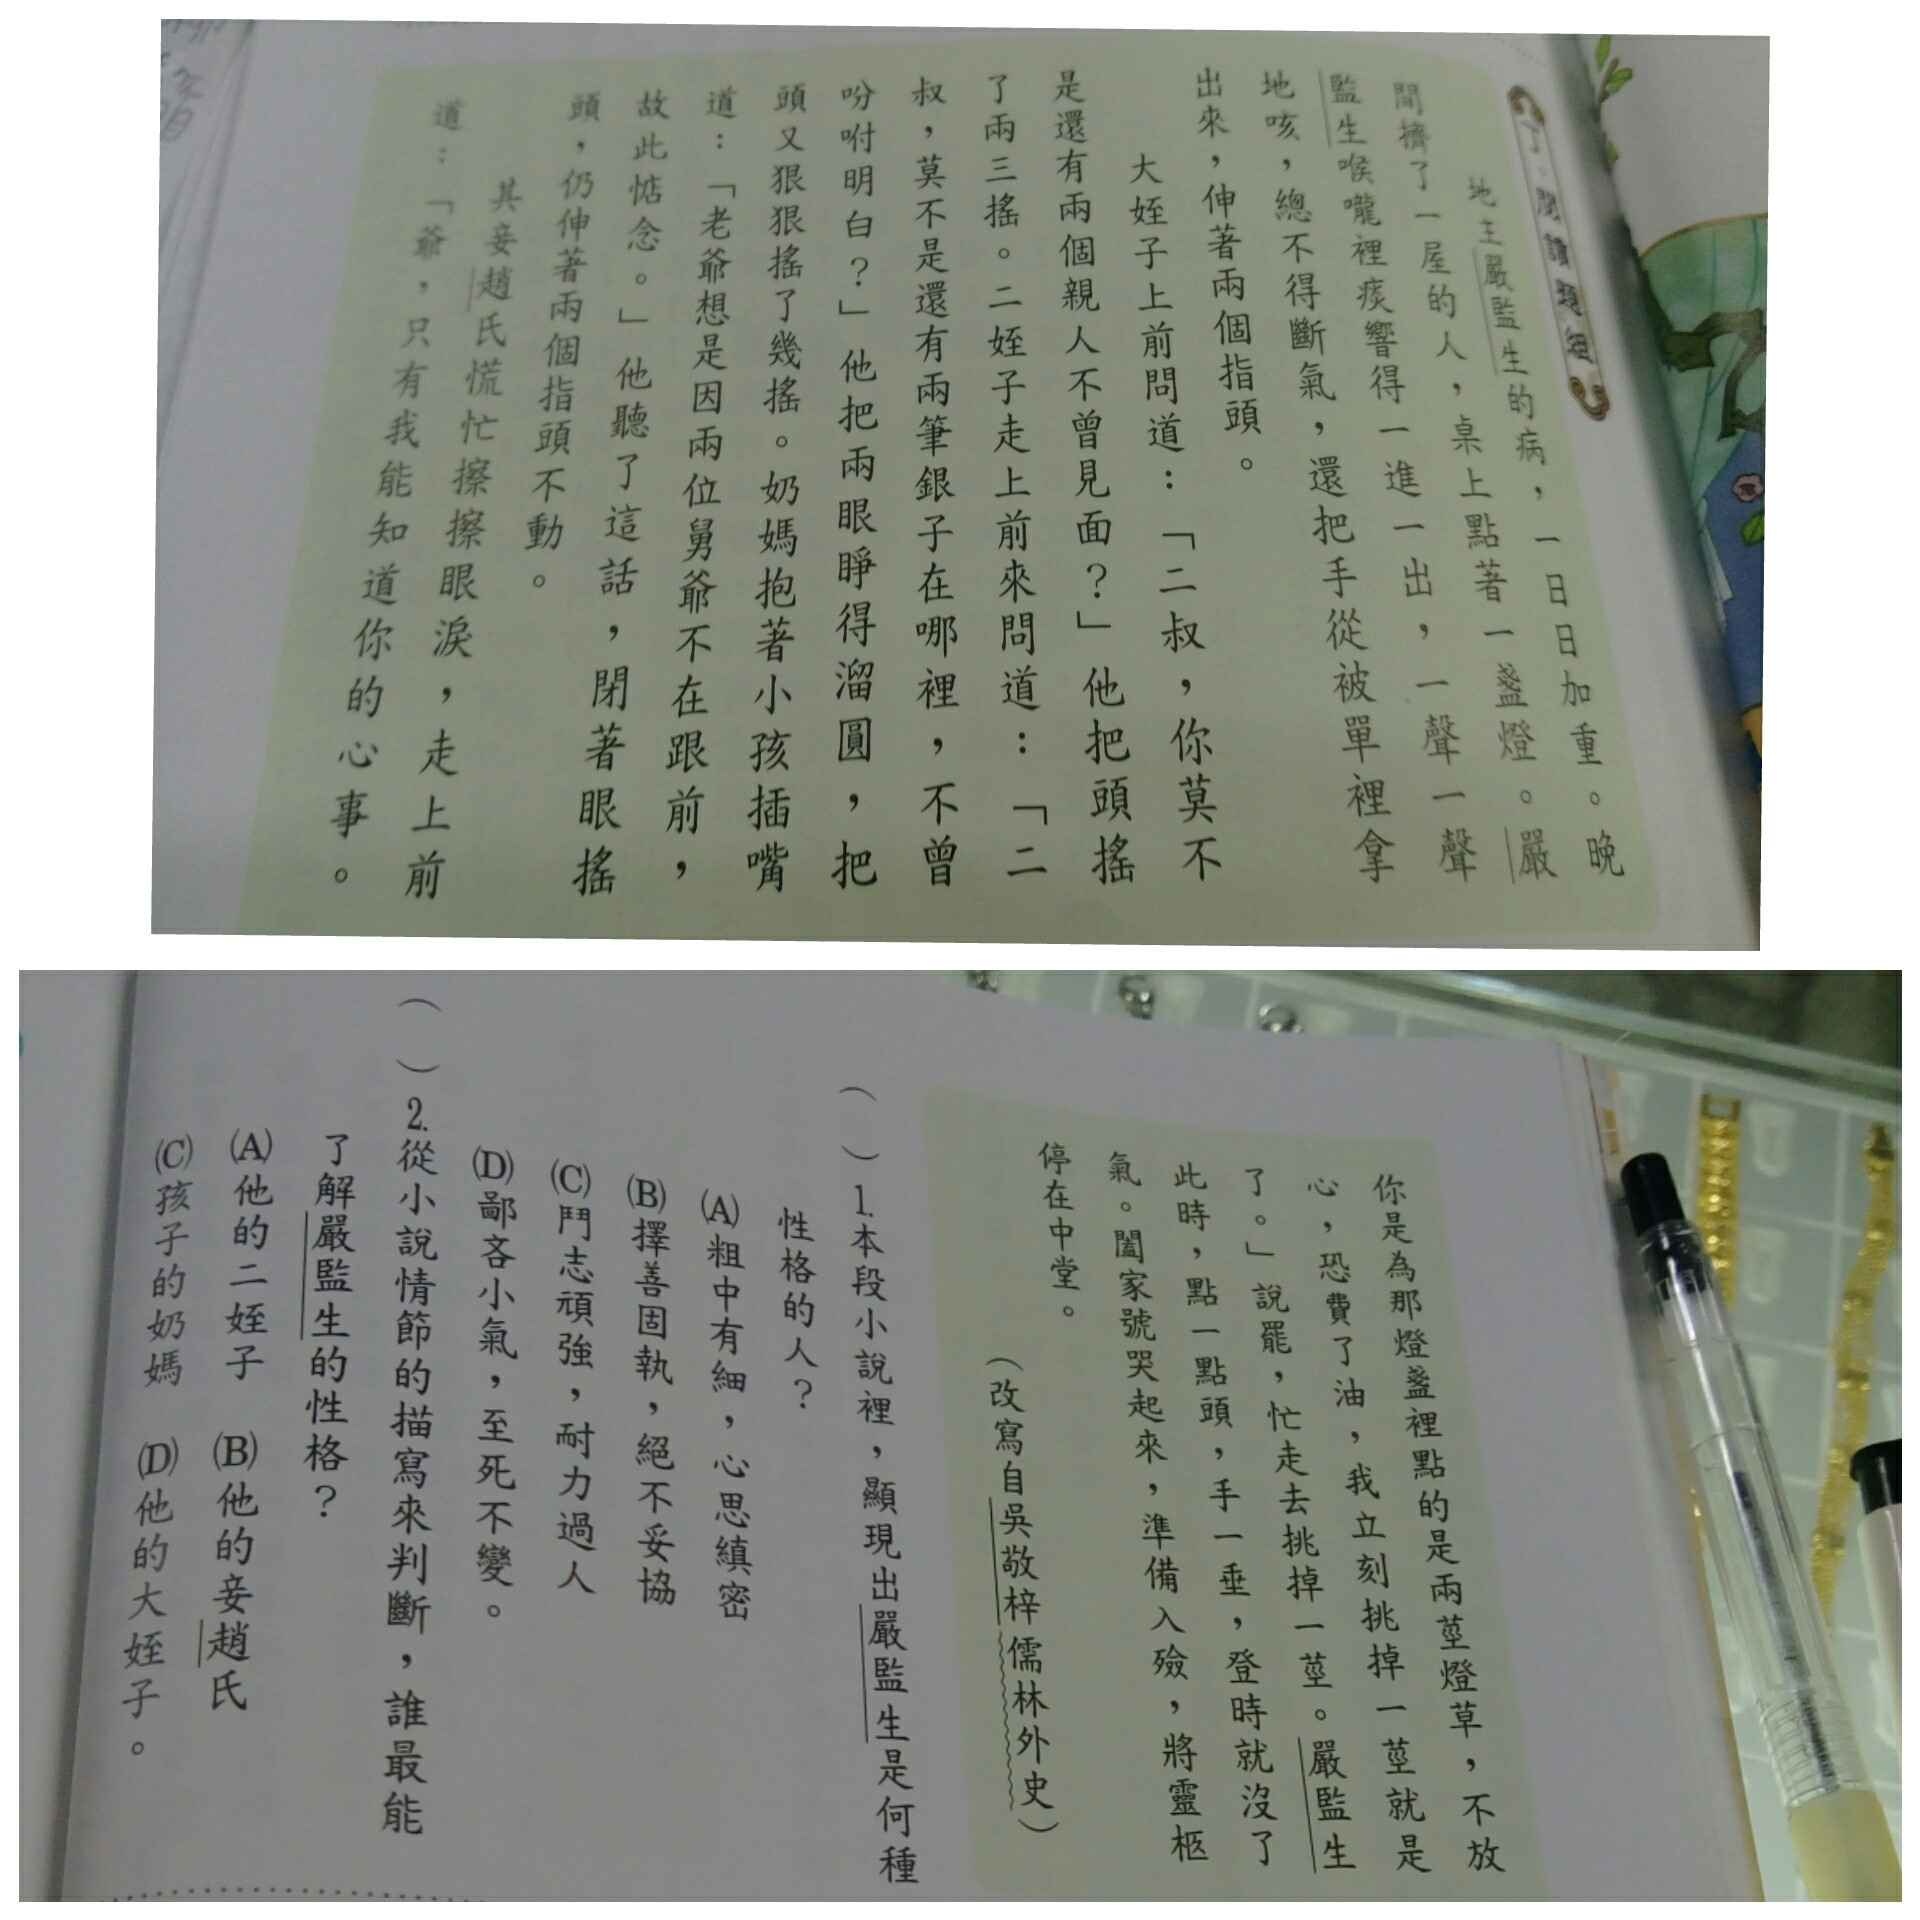 閱讀題組
地主嚴監生的病，一日日加重。晚
間擠了一屋的人，桌上點著一盞燈。嚴
監生喉嚨裡痰響得一進一出，一聲一聲
地咳，總不得斷氣，還把手從被單裡拿
出來，伸著兩個指頭。
大姪子上前問道：「二叔，你莫不
是還有兩個親人不曾見面？」他把頭搖
了兩三搖。二姪子走上前來問道：「二
叔，莫不是還有兩筆銀子在哪裡，不曾
吩咐明白？」他把兩眼睜得溜圓，把
頭又狠狠搖了幾搖。奶媽抱著小孩插嘴
道：「老爺想是因兩位舅爺不在跟前，
故此惦念。」他聽了這話，閉著眼搖
頭，仍伸著兩個指頭不動。
其妾趙氏慌忙擦擦眼淚，走上前
道：「爺，只有我能知道你的心事。
你是為那燈盞裡點的是兩莖燈草，不放
心，恐費了油，我立刻挑掉一莖就是
了。」說罷，忙走去挑掉一莖。嚴監生
此時，點一點頭，手一垂，登時就沒了
氣。闔家號哭起來，準備入殮，將靈柩
停在中堂。
（改寫自吳敬梓儒林外史）
（　）1.本段小說裡，顯現出嚴監生是何種
性格的人？
(A)粗中有細，心思縝密
(B)擇善固執，絕不妥協
(C)鬥志頑強，耐力過人
(D)鄙吝小氣，至死不變。
（　）2.從小說情節的描寫來判斷，誰最能
了解嚴監生的性格？
(A)他的二姪子　(B)他的妾趙氏
(C)孩子的奶媽　(D)他的大姪子。